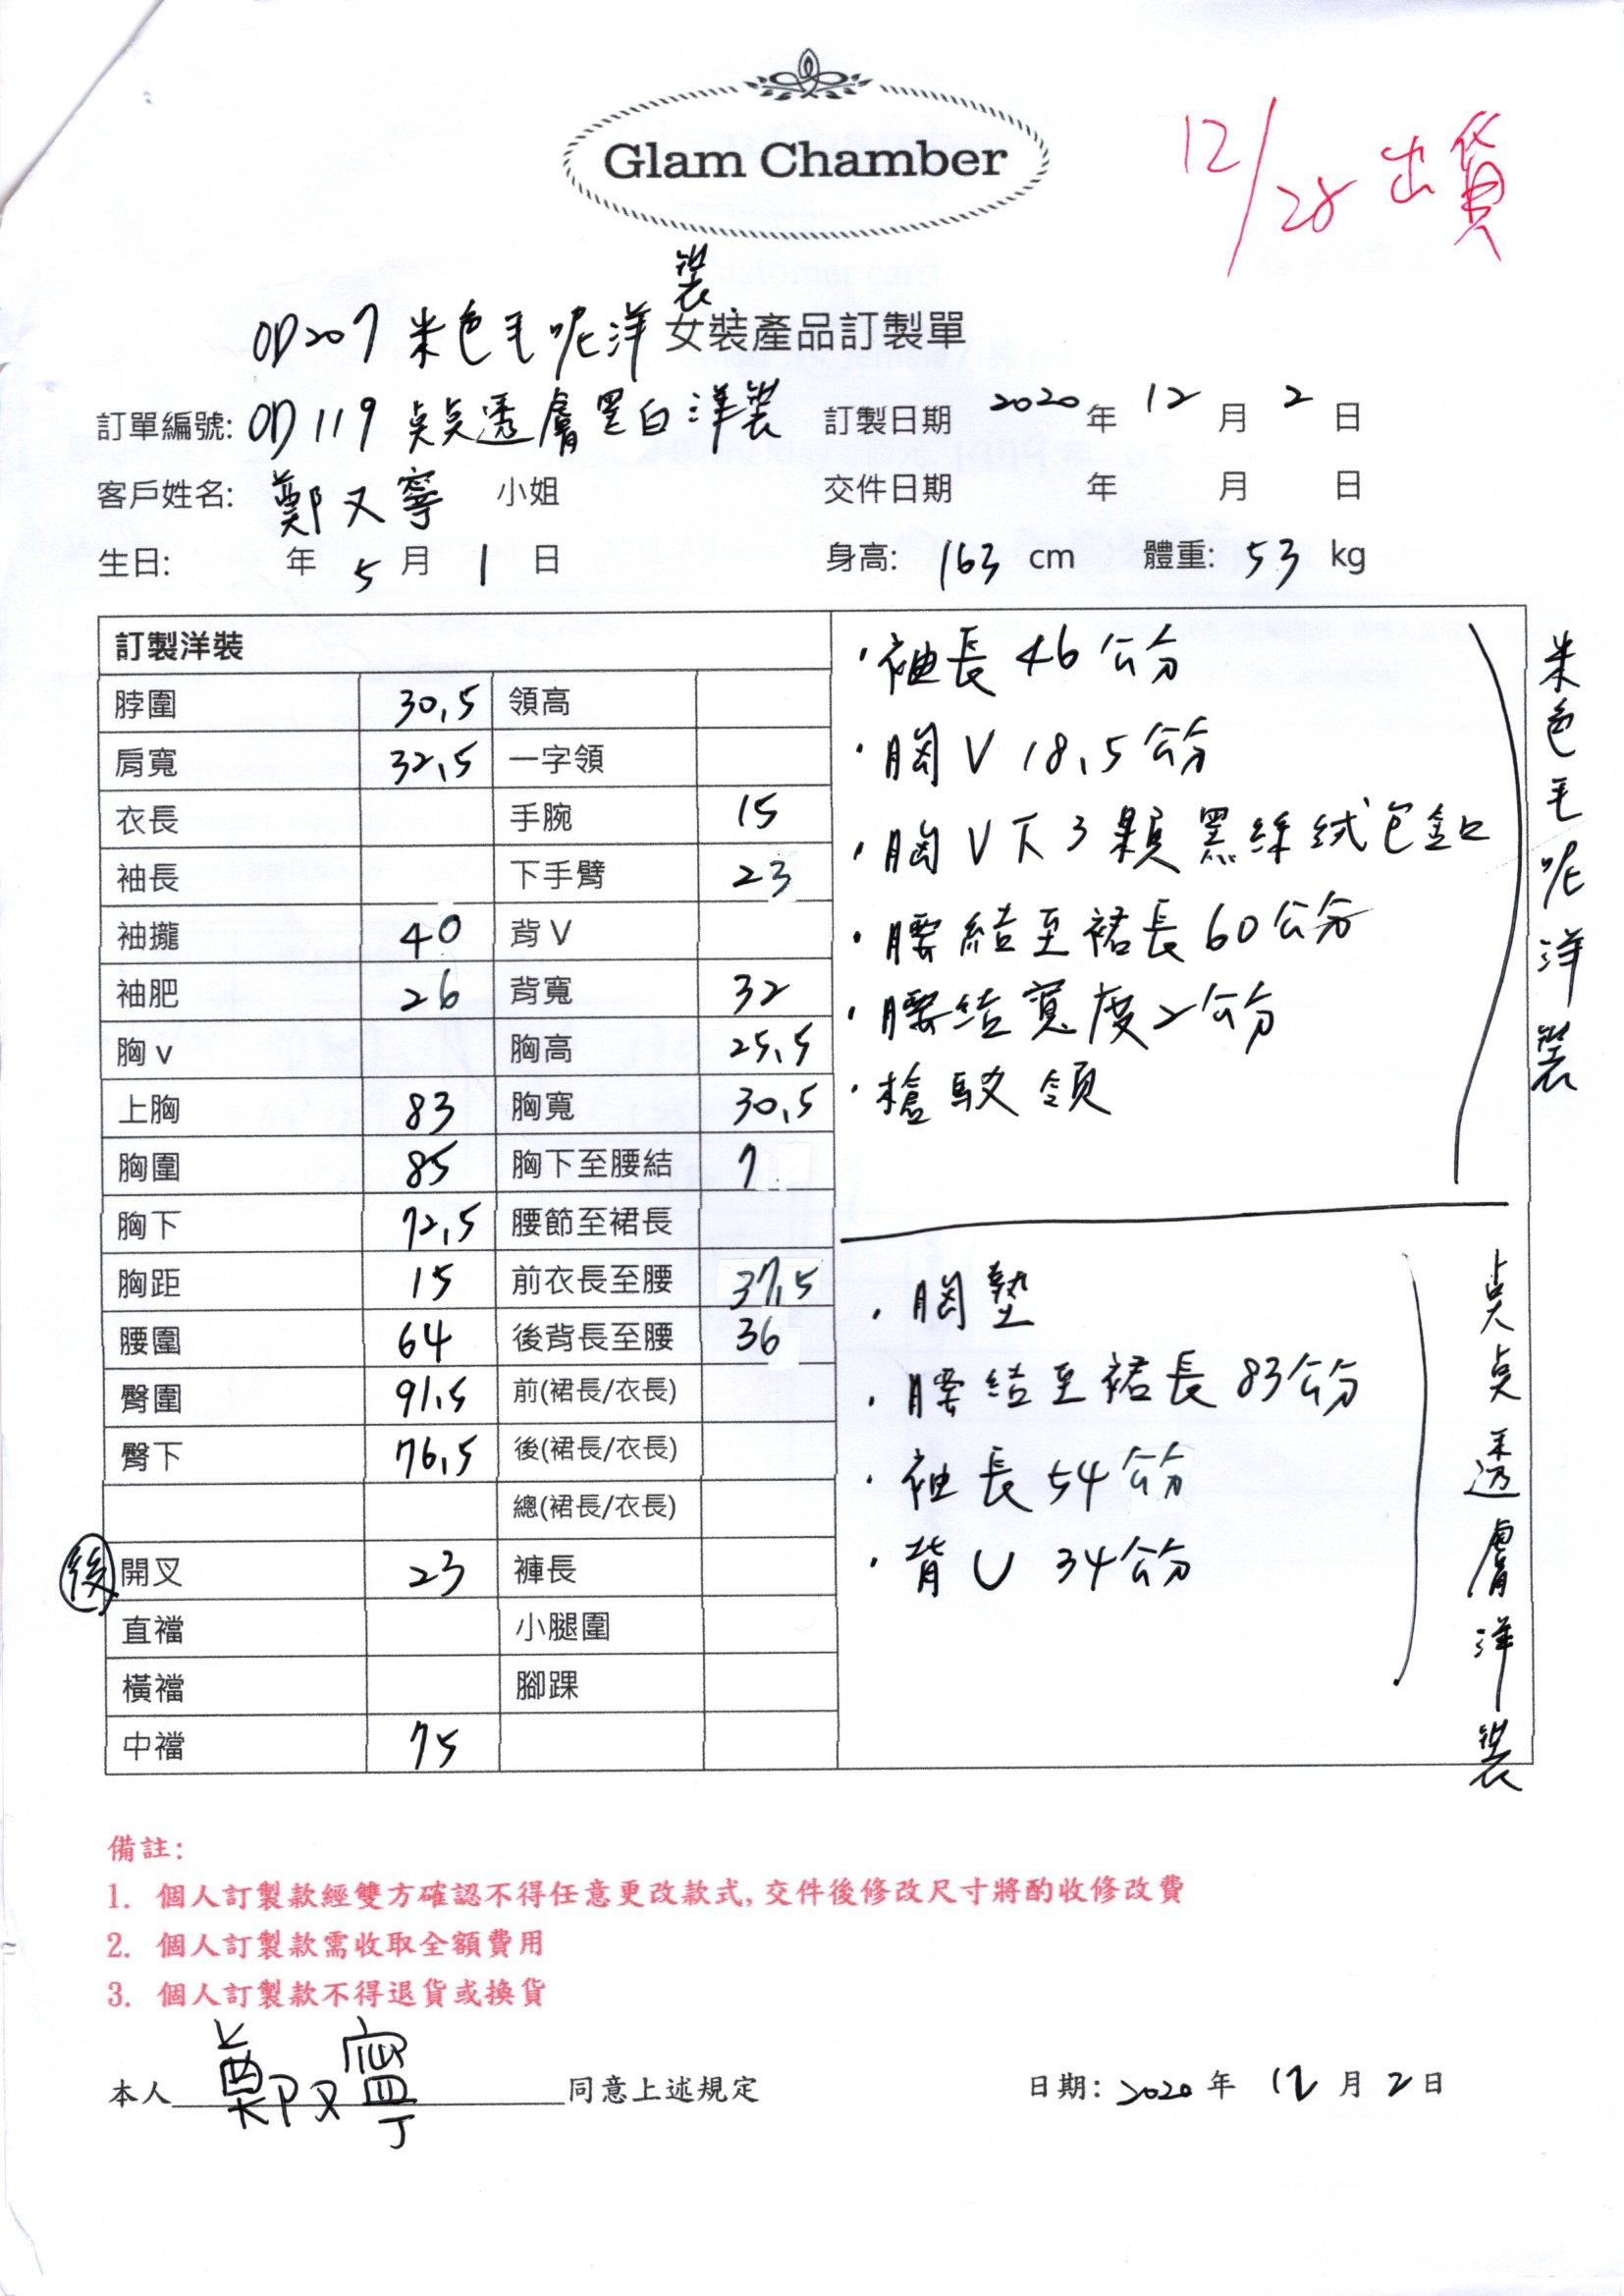 Glam Chamber
12/28 出貨
OD207 米色毛呢洋裝
女裝產品訂製單
訂單編號: OD119 點點透膚黑白洋裝 訂製日期 2020 年 12 月 2 日
客戶姓名: 鄭又寧 小姐 交件日期 年 月 日
生日: 年 5 月 1 日 身高: 163 cm 體重: 53 kg
訂製洋裝
脖圍 30.5 領高
肩寬 32.5 一字領
衣長 手腕 15
袖長 下手臂 23
袖攏 40 背V
袖肥 26 背寬 32
胸v 胸高 25.5
上胸 83 胸寬 30.5
胸圍 85 胸下至腰結 7
胸下 72.5 腰節至裙長
胸距 15 前衣長至腰 37.5
腰圍 64 後背長至腰 36
臀圍 91.5 前(裙長/衣長)
臀下 76.5 後(裙長/衣長)
總(裙長/衣長)
後 開叉 23 褲長
直襠 小腿圍
橫襠 腳踝
中襠 75
·袖長 46 公分
·胸V 18.5 公分
·胸V下3顆黑絲絨包釦
·腰結至裙長60公分
·腰結寬度2公分
·槍駁領
米色毛呢洋裝
·胸墊
·腰結至裙長83公分
·袖長54公分
·背U 34公分
點點透膚洋裝
備註:
1. 個人訂製款經雙方確認不得任意更改款式,交件後修改尺寸將酌收修改費
2. 個人訂製款需收取全額費用
3. 個人訂製款不得退貨或換貨
本人 鄭又寧 同意上述規定 日期: 2020 年 12 月 2 日